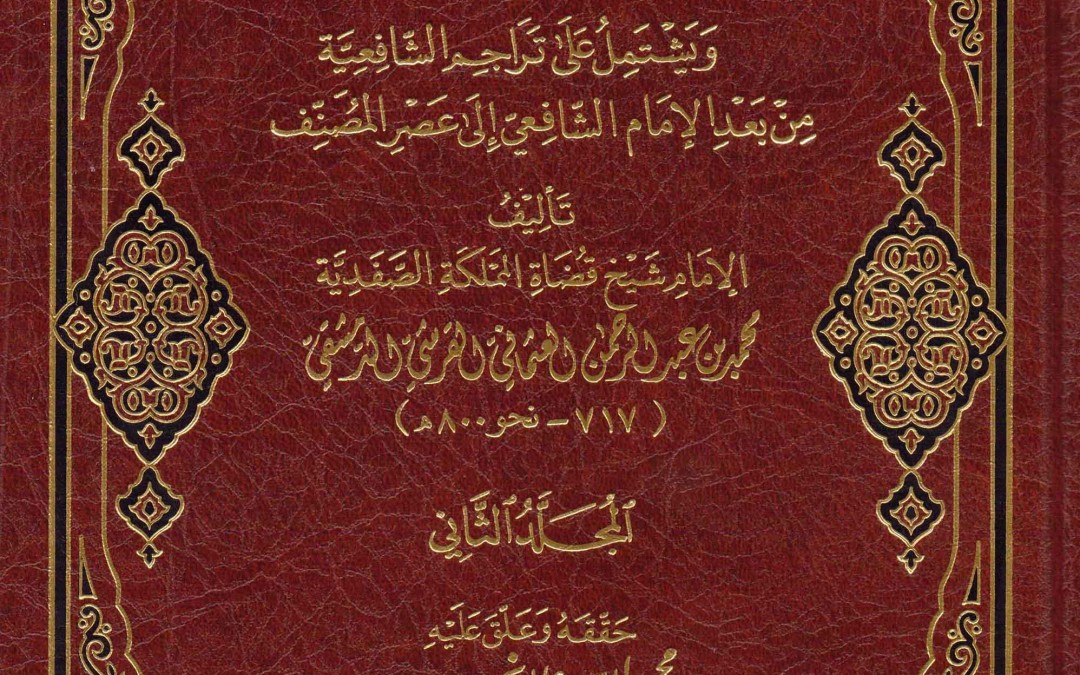 وَيَشْتَمِلُ عَلَى تَرَاجِمِ الشَّافِعِيَّةِ
مِنْ بَعْدِ الإِمَامِ الشَّافِعِيِّ إِلَى عَصْرِ المُصَنِّفِ
تَأْلِيْفُ
الإِمَامِ شَيْخِ قُضَاةِ المَمْلَكَةِ الصَّفَدِيَّةِ
محمد بن عبد الرحمن العثماني القرشي الدمشقي
(٧١٧ - نحو ٨٠٠ هـ)
المُجَلَّدُ الثَّانِي
حَقَّقَهُ وَعَلَّقَ عَلَيْهِ